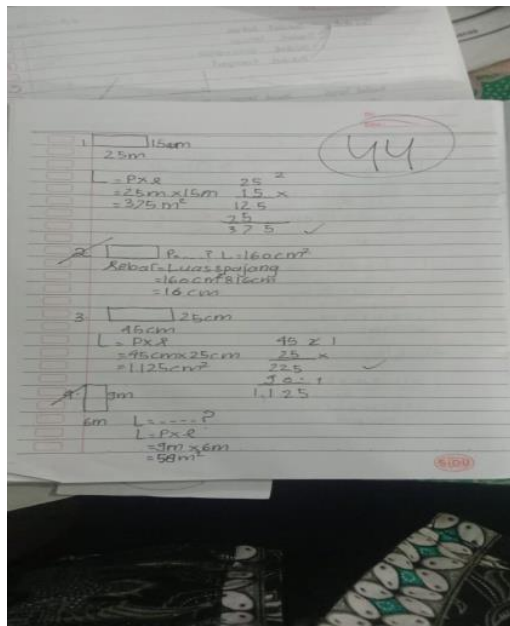 44
1 15cm
25m
L = P x l
= 25m x 15m
= 375 m²
25 2
15 x
125
25
375
2 P... ? L = 160cm²
Lebar = Luas : pajang
= 16 cm
3. 25cm
45cm
L = P x l
= 45cm x 25cm
= 1.125cm²
45 2 1
25 x
225
90
1.125
4. 9m
6m L = ....?
L = P x l
= 9m x 6m
SIDU